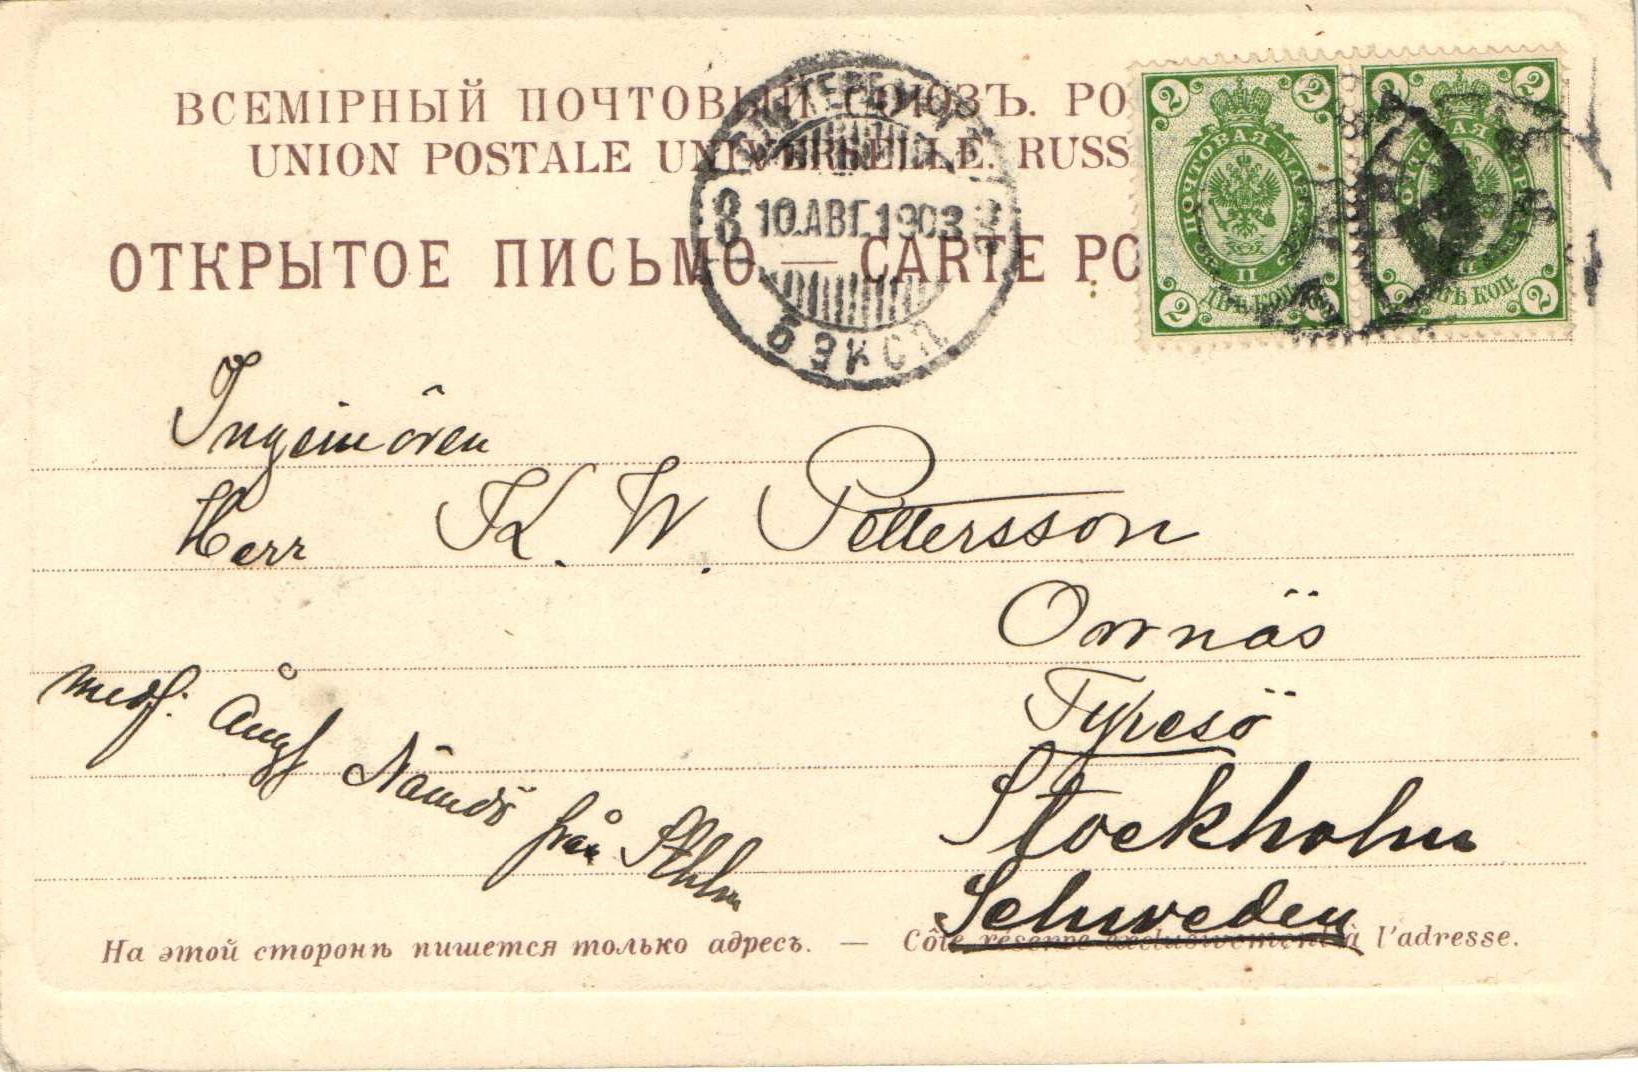 ВСЕМІРНЫЙ ПОЧТОВЫЙ СОЮЗЪ. РО
UNION POSTALE UNIVERSELLE. RUSS
ОТКРЫТОЕ ПИСЬМО — CARTE PO
2 2
ПОЧТОВАЯ МАРКА
II
2 2
2 2
2 2
8 10.АВГ.1903
ЭКСП
Ingeniören
Herr K. W. Pettersson
Orrnäs
Tyresö
Stockholm
Schweden
med: Ångf Nämdö från Sthlm
На этой сторонѣ пишется только адресъ. — Côté réservé exclusivement à l'adresse.